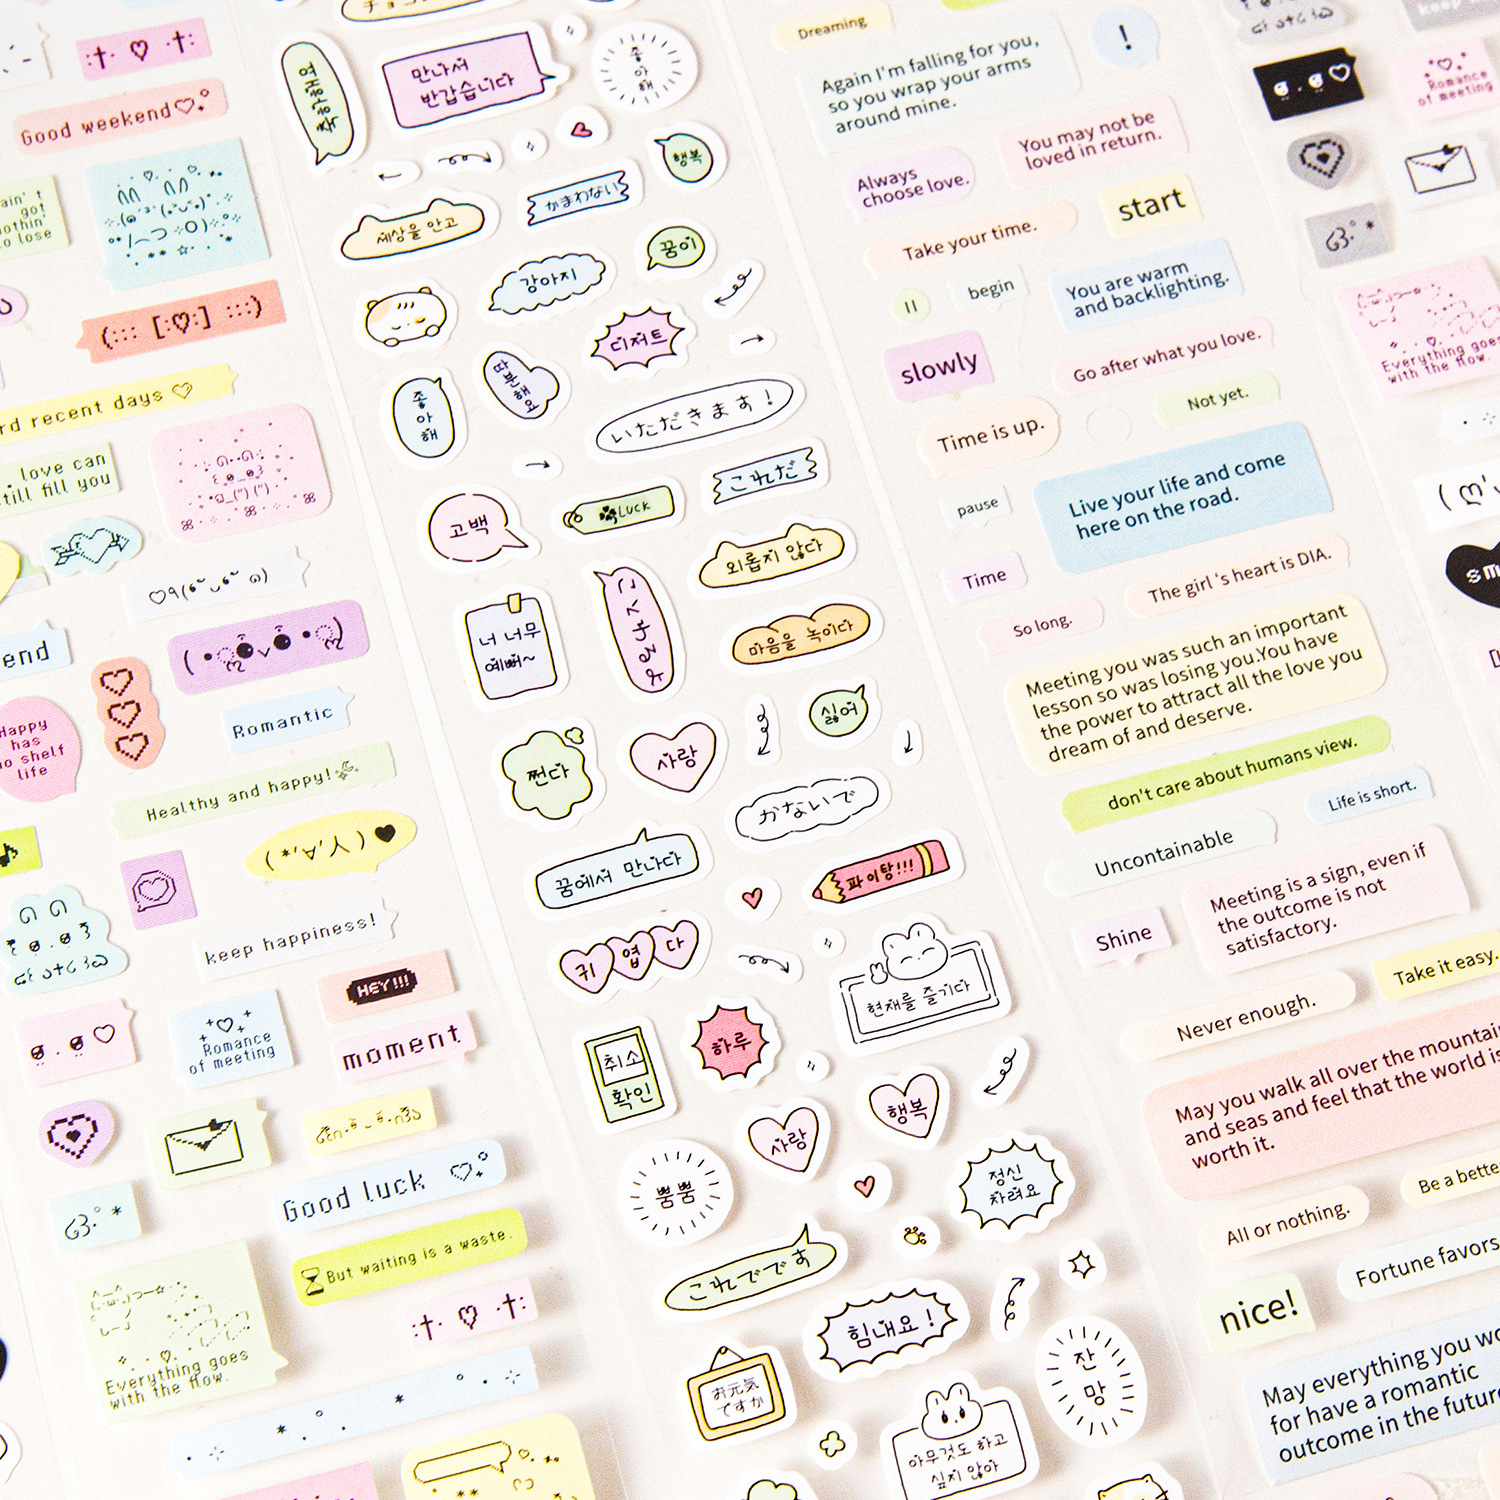 Good weekend
ain't
got
nothin'
to lose
rd recent days
. love can
till fill you
end
Romantic
Happy
has
no shelf
life
Healthy and happy!
keep happiness!
HEY!!!
Romance
of meeting
moment
Good luck
But waiting is a waste.
Everything goes
with the flow.
착하해여
만나서
반갑습니다
좋
아
해
행복
세상을 안고
かまわない
강아지
꿈이
디저트
좋
아
해
いただきます!
これだ
고백
LUCK
외롭지 않다
너 너무
예뻐~
마음을 녹이다
싫어
쩐다
사랑
かないで
꿈에서 만나다
파이팅!!!
귀엽다
현재를 즐기다
취소
확인
하루
사랑
행복
뿜뿜
정신
차려요
これでです
힘내요!
お元気
ですか
잔
망
아무것도 하고
싶지 않아
Dreaming
!
Again I'm falling for you,
so you wrap your arms
around mine.
You may not be
loved in return.
Always
choose love.
start
Take your time.
begin
You are warm
and backlighting.
slowly
Go after what you love.
Not yet.
Time is up.
Live your life and come
here on the road.
pause
Time
The girl's heart is DIA.
So long.
Meeting you was such an important
lesson so was losing you.You have
the power to attract all the love you
dream of and deserve.
don't care about humans view.
Life is short.
Uncontainable
Meeting is a sign, even if
the outcome is not
satisfactory.
Shine
Take it easy.
Never enough.
May you walk all over the mountai
and seas and feel that the world is
worth it.
Be a bette
All or nothing.
Fortune favors
nice!
May everything you wo
for have a romantic
outcome in the future
Romance
of meeting
Everything goes
with the flow.